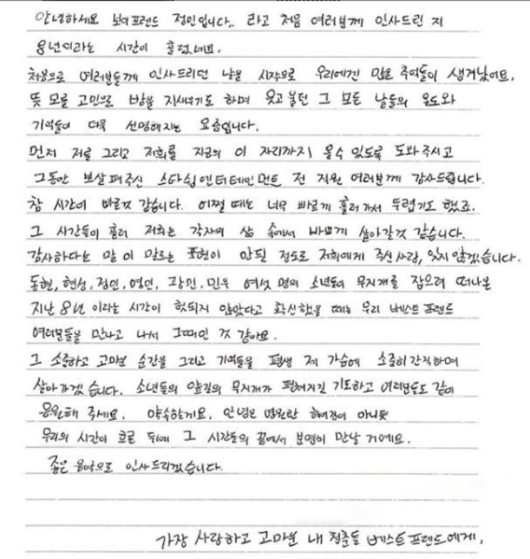 안녕하세요 보이프렌드 정민입니다.. 라고 처음 여러분께 인사드린 지
8년이라는 시간이 흘렀네요.
처음으로 여러분들께 인사드리던 날을 시작으로 우리에겐 많은 추억들이 생겨났어요.
뜻 모를 고민으로 밤을 지새우기도 하며 웃고 울던 그 모든 날들의 온도와
기억들이 더욱 선명해지는 요즘입니다.
먼저 저를 그리고 저희를 지금의 이 자리까지 올수 있도록 도와주시고
그동안 보살펴주신 스타쉽엔터테인먼트 전 직원 여러분께 감사드립니다.
참 시간이 빠른것 같습니다. 어쩔 때는 너무 빠르게 흘러가서 두렵기도 했죠.
그 시간들이 흘러 저희는 각자의 삶 속에서 바쁘게 살아갈것 같습니다.
감사하다는 말 이 말로는 표현이 안될 정도로 저희에게 주신 사랑, 잊지 않겠습니다.
동현, 현성, 정민, 영민, 광민, 민우 여섯 명의 소년들이 무지개를 잡으려 떠나온
지난 8년 이라는 시간이 헛되지 않았다고 확신했을 때는 우리 베스트 프렌드
여러분들을 만나고 나서 그때인 것 같아요.
그 소중하고 고마운 순간을 그리고 기억들을 평생 제 가슴에 소중히 간직하며
살아가겠습니다. 소년들의 앞길의 무지개가 펼쳐지길 기도하고 여러분들도 같이
응원해 주세요. 약속할게요. 안녕은 영원한 헤어짐이 아니듯
우리의 시간이 흐른 뒤에 그 시간들의 끝에서 분명히 만날 거에요.
좋은 음악으로 인사드리겠습니다.
가장 사랑하고 고마운 내 청춘들 베스트프렌드에게.